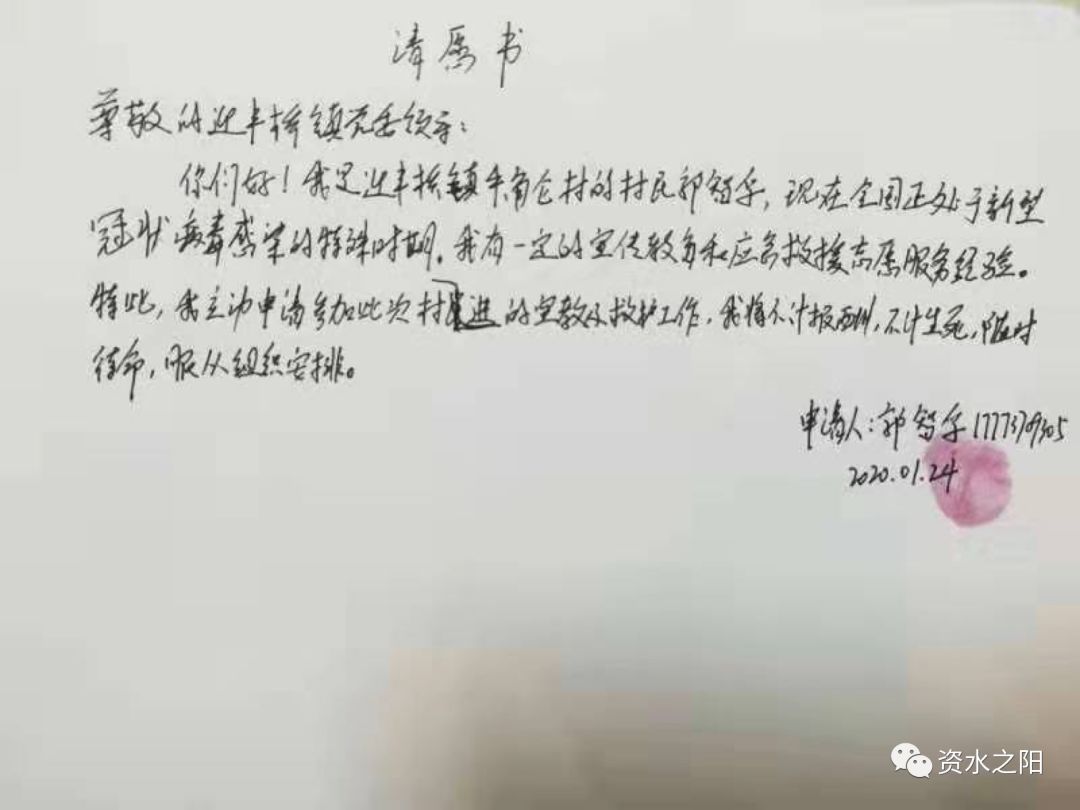 请愿书
尊敬的迎丰桥镇党委领导:
你们好!我是迎丰桥镇牛角仑村的村民郭智乎,现在全国正处于新型
冠状病毒感染的特殊时期。我有一定的宣传教育和应急救援志愿服务经验。
特此,我主动申请参加此次村 的宣教及救护工作,我将不计报酬,不计生死,随时
待命,服从组织安排。
申请人:郭智乎
2020.01.24
资水之阳